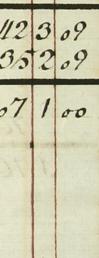 423 09
352 09
07 1 00